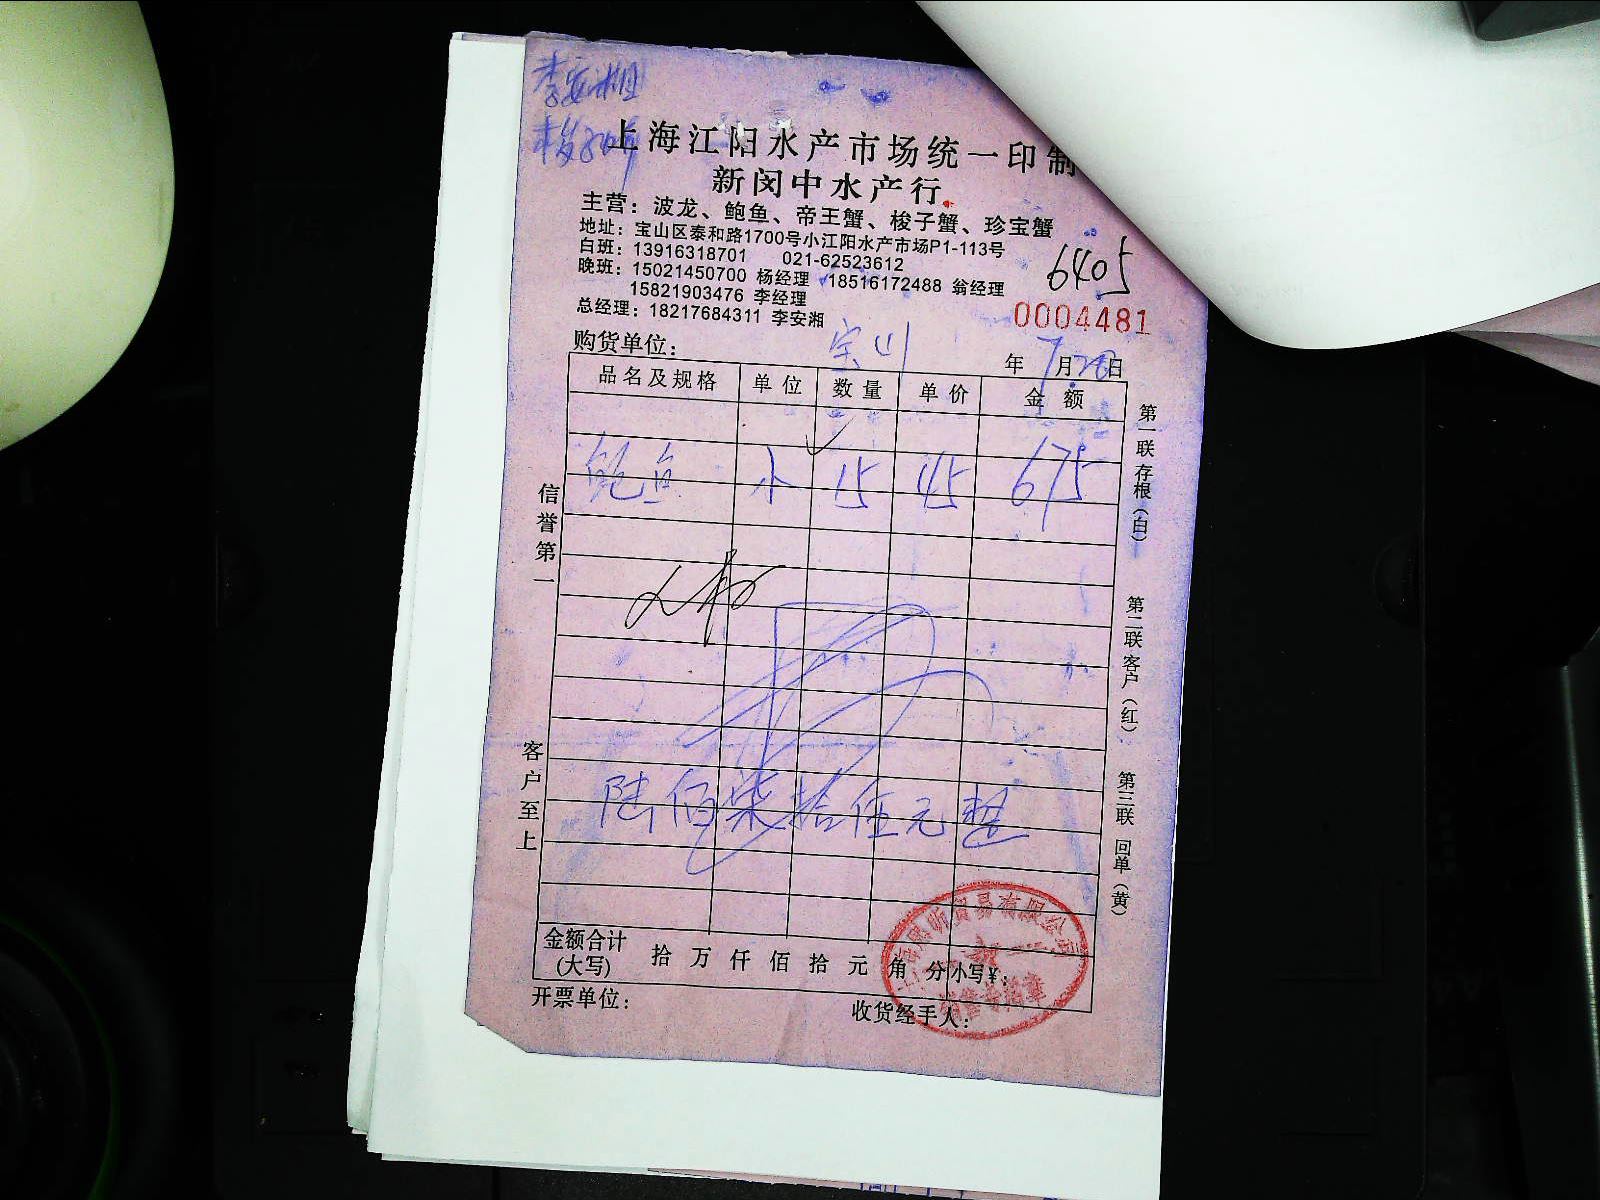 李安湘
上海江阳水产市场统一印制
新闵中水产行
主营：波龙、鲍鱼、帝王蟹、梭子蟹、珍宝蟹
地址：宝山区泰和路1700号小江阳水产市场P1-113号
白班：13916318701 021-62523612
晚班：15021450700 杨经理 18516172488 翁经理
15821903476 李经理
总经理：18217684311 李安湘
6405
0004481
购货单位：宝山
年7月28日
品名及规格 单位 数量 单价 金额
鲍鱼 小 15 45 675
陆佰柒拾伍元整
金额合计(大写) 拾 万 仟 佰 拾 元 角 分 小写¥：
开票单位： 收货经手人：
信誉第一
客户至上
第一联 存根（白）
第二联 客户（红）
第三联 回单（黄）